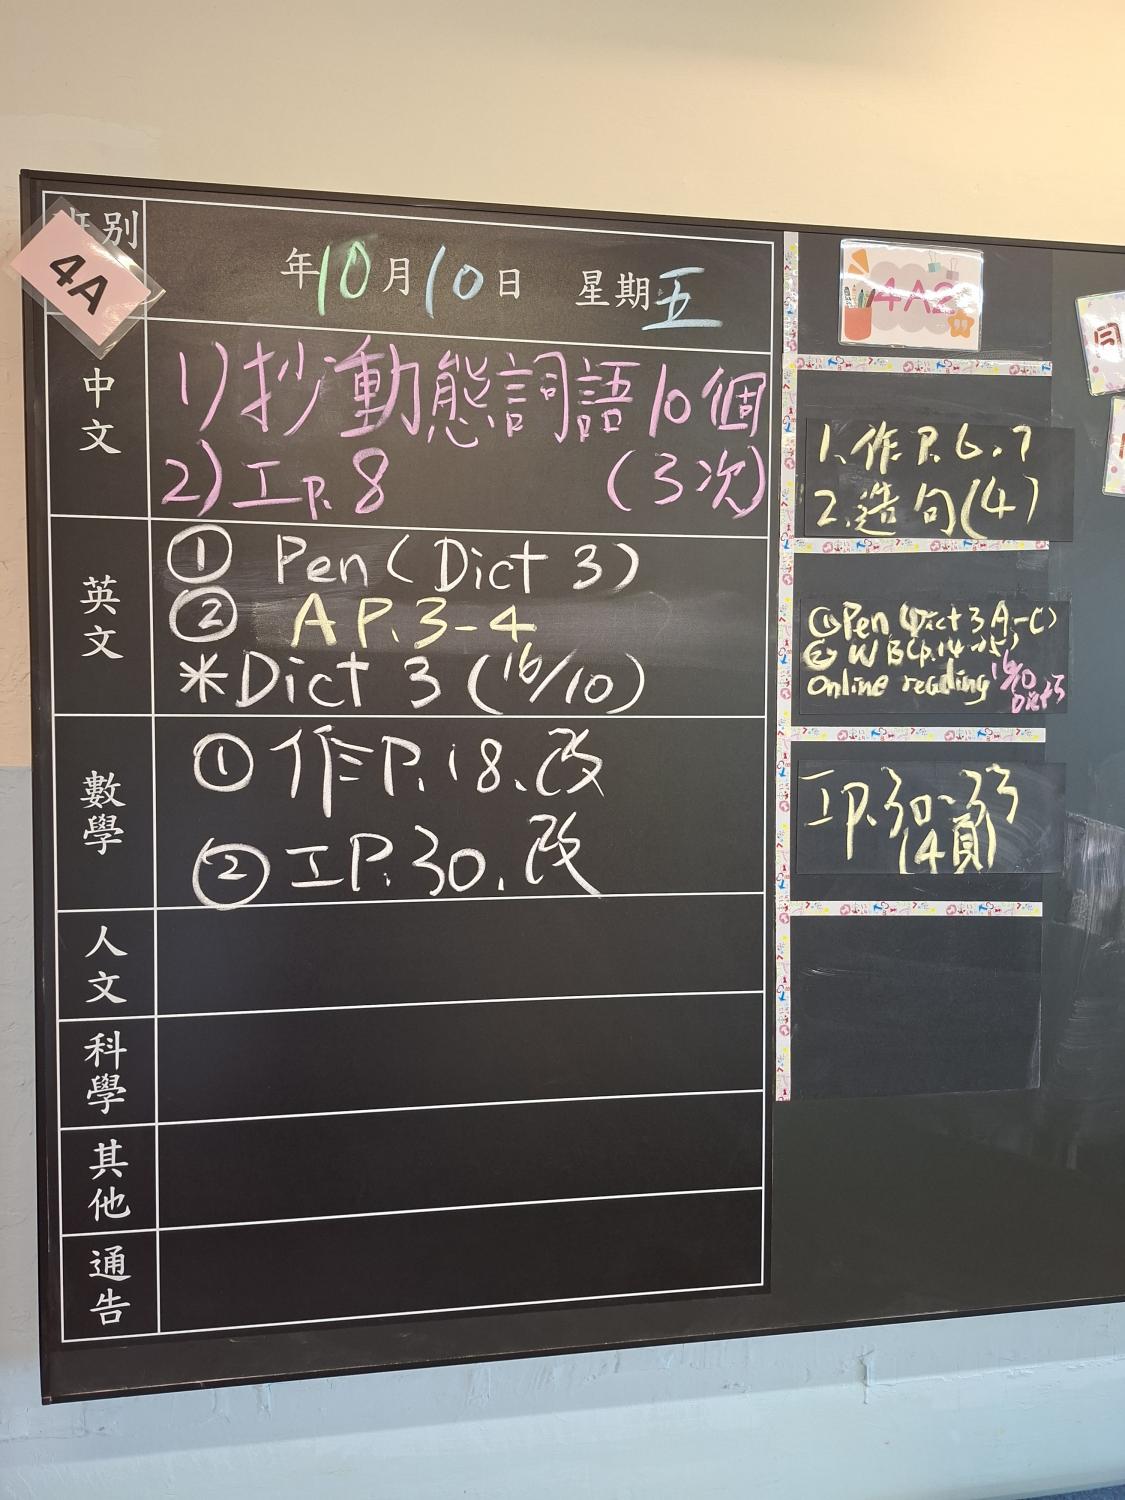 班別
4A
年10月10日 星期五
中文
1)抄動態詞語10個
2)工P.8 (3次)
英文
① Pen (Dict 3)
② A P.3-4
*Dict 3 (16/10)
數學
①作P.18、改
②工P.30.改
人文
科學
其他
通告
4A2
1.作P.6,7
2.造句(4)
①Pen (Dict 3 A-C)
② WB(p.14-15)
Online reading
16/10
Dict 3
工P.30-33
(4頁)
同